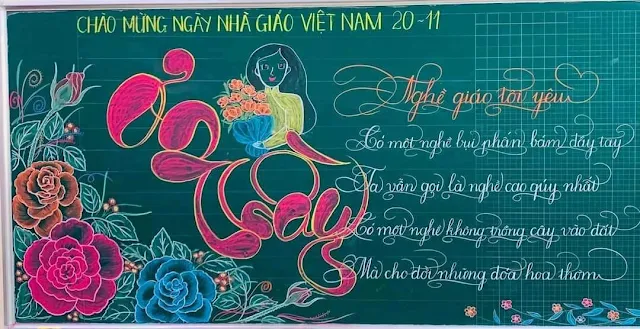 CHÀO MỪNG NGÀY NHÀ GIÁO VIỆT NAM 20-11
Ơn Thầy
Nghề giáo tôi yêu
Có một nghề bụi phấn bám đầy tay
Ta vẫn gọi là nghề cao qúy nhất
Có một nghề không trồng cây vào đất
Mà cho đời những đóa hoa thơm